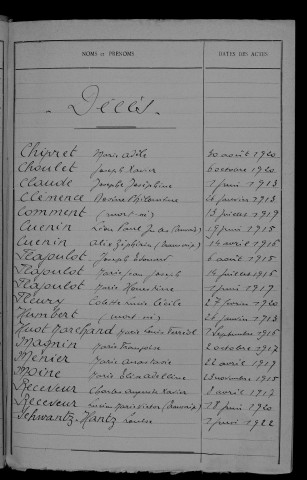 NOMS ET PRÉNOMS DATES DES ACTES
Décès
Chipret Marie Adèle 30 août 1920
Choulet Joseph Xavier 6 octobre 1920
Claude Joseph Joséphine 1 juin 1913
Clémence Rosine Philomène 26 février 1913
Comment (mort-né) 13 juillet 1919
Cuenin Léon Paul 19 juin 1915
Cuenin Alix Zéphirin 14 avril 1916
Flapoulot Joseph Edouard 6 août 1915
Flapoulot Marie Jean Joseph 14 juillet 1916
Flapoulot Marie 1 juin 1917
Fleury Colette Lucie Cécile 27 février 1920
Humbert (mort-né) 26 juin 1913
Huot Marchand Marie 7 septembre 1916
Magnin Marie Françoise 2 octobre 1917
Ménier Marie Anastasie 22 avril 1917
Moine Marie Elise Adeline 23 novembre 1915
Receveur Charles Auguste Xavier 2 avril 1917
Receveur Lucien Marie Victor 18 juin 1920
Schwartz-Hantz Louise 7 juin 1922